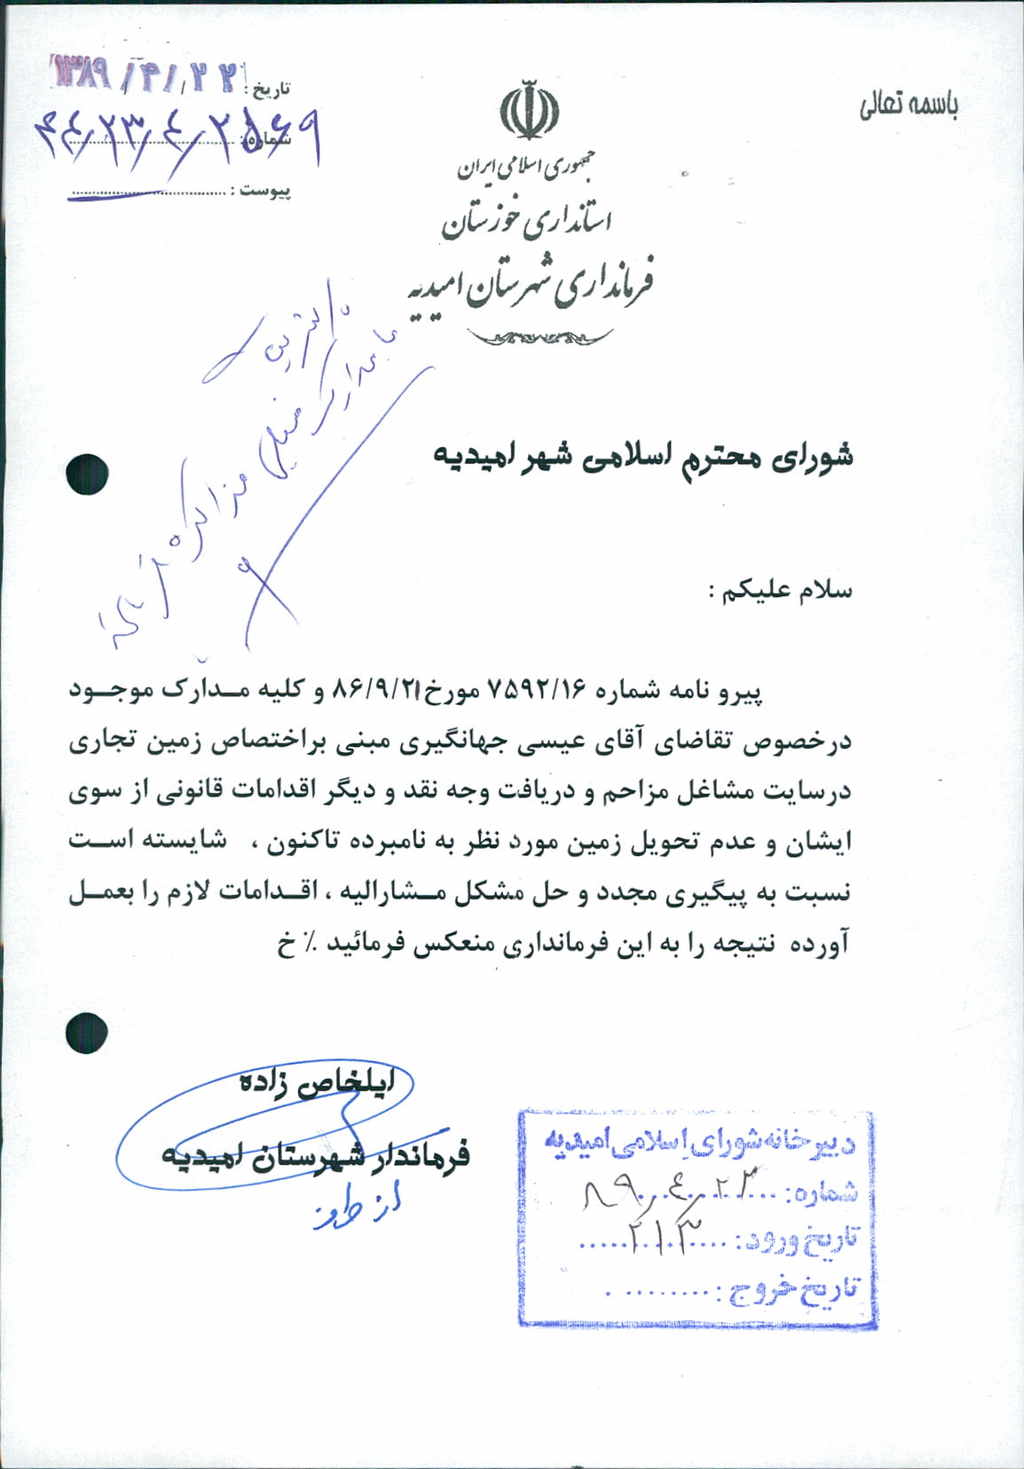 باسمه تعالی
تاریخ : ۱۳۸۹/۴/۲۲
شماره: ۴۴/۲۳/۴/۲۵۶۹
پیوست :
جمهوری اسلامی ایران
استانداری خوزستان
فرمانداری شهرستان امیدیه
شورای محترم اسلامی شهر امیدیه
سلام علیکم :
پیرو نامه شماره ۷۵۹۲/۱۶ مورخ ۸۶/۹/۲۱ و کلیه مـدارک موجـود
درخصوص تقاضای آقای عیسی جهانگیری مبنی براختصاص زمین تجاری
درسایت مشاغل مزاحم و دریافت وجه نقد و دیگر اقدامات قانونی از سوی
ایشان و عدم تحویل زمین مورد نظر به نامبرده تاکنون ، شایسته اسـت
نسبت به پیگیری مجدد و حل مشکل مـشارالیه ، اقـدامات لازم را بعمـل
آورده نتیجه را به این فرمانداری منعکس فرمائید ٪ خ
ایلخاص زاده
فرماندار شهرستان امیدیه
از طرف
دبیرخانه شورای اسلامی امیدیه
شماره: ۸۹/۴/۲۳
تاریخ ورود: ۲۱۳
تاریخ خروج :